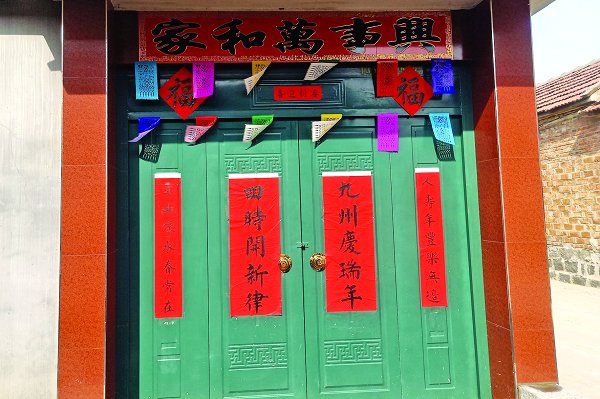 家和萬事興
福
福
喜迎新春
九州慶瑞年
四時開新律
人寿年豐樂無
春常在